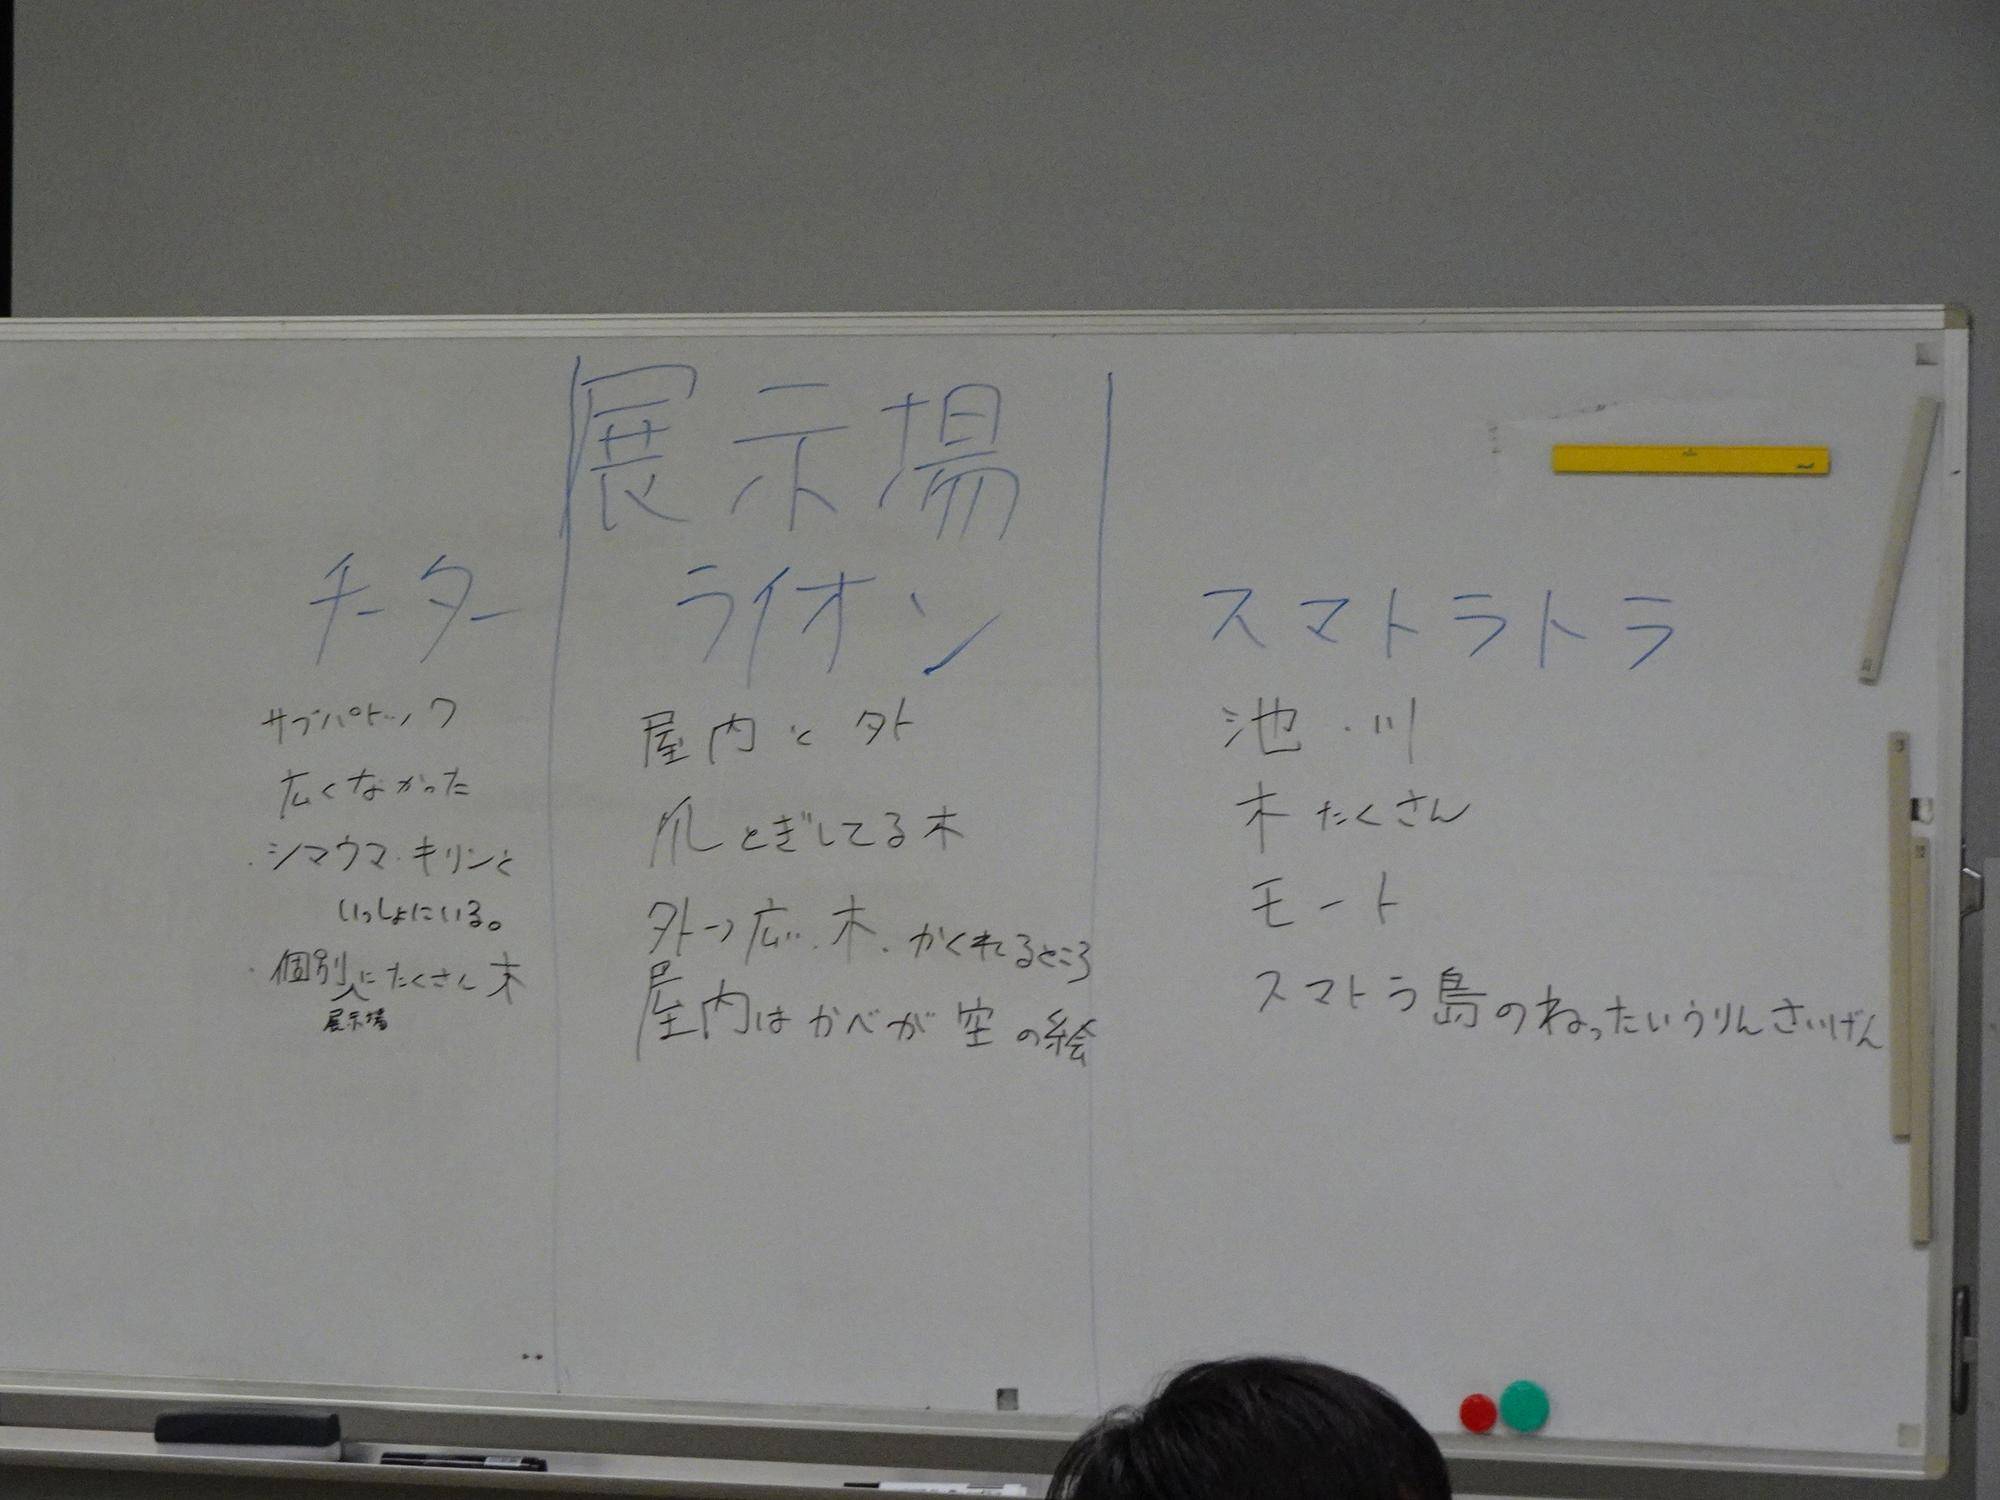 展示場
チーター
サブパドック
広くなかった
・シマウマ・キリンと
いっしょにいる。
・個別にたくさん木
展示場
ライオン
屋内と外
爪とぎしてる木
外→広い・木・かくれるところ
屋内はかべが空の絵
スマトラトラ
池・川
木たくさん
モート
スマトラ島のねったいうりんさいげん